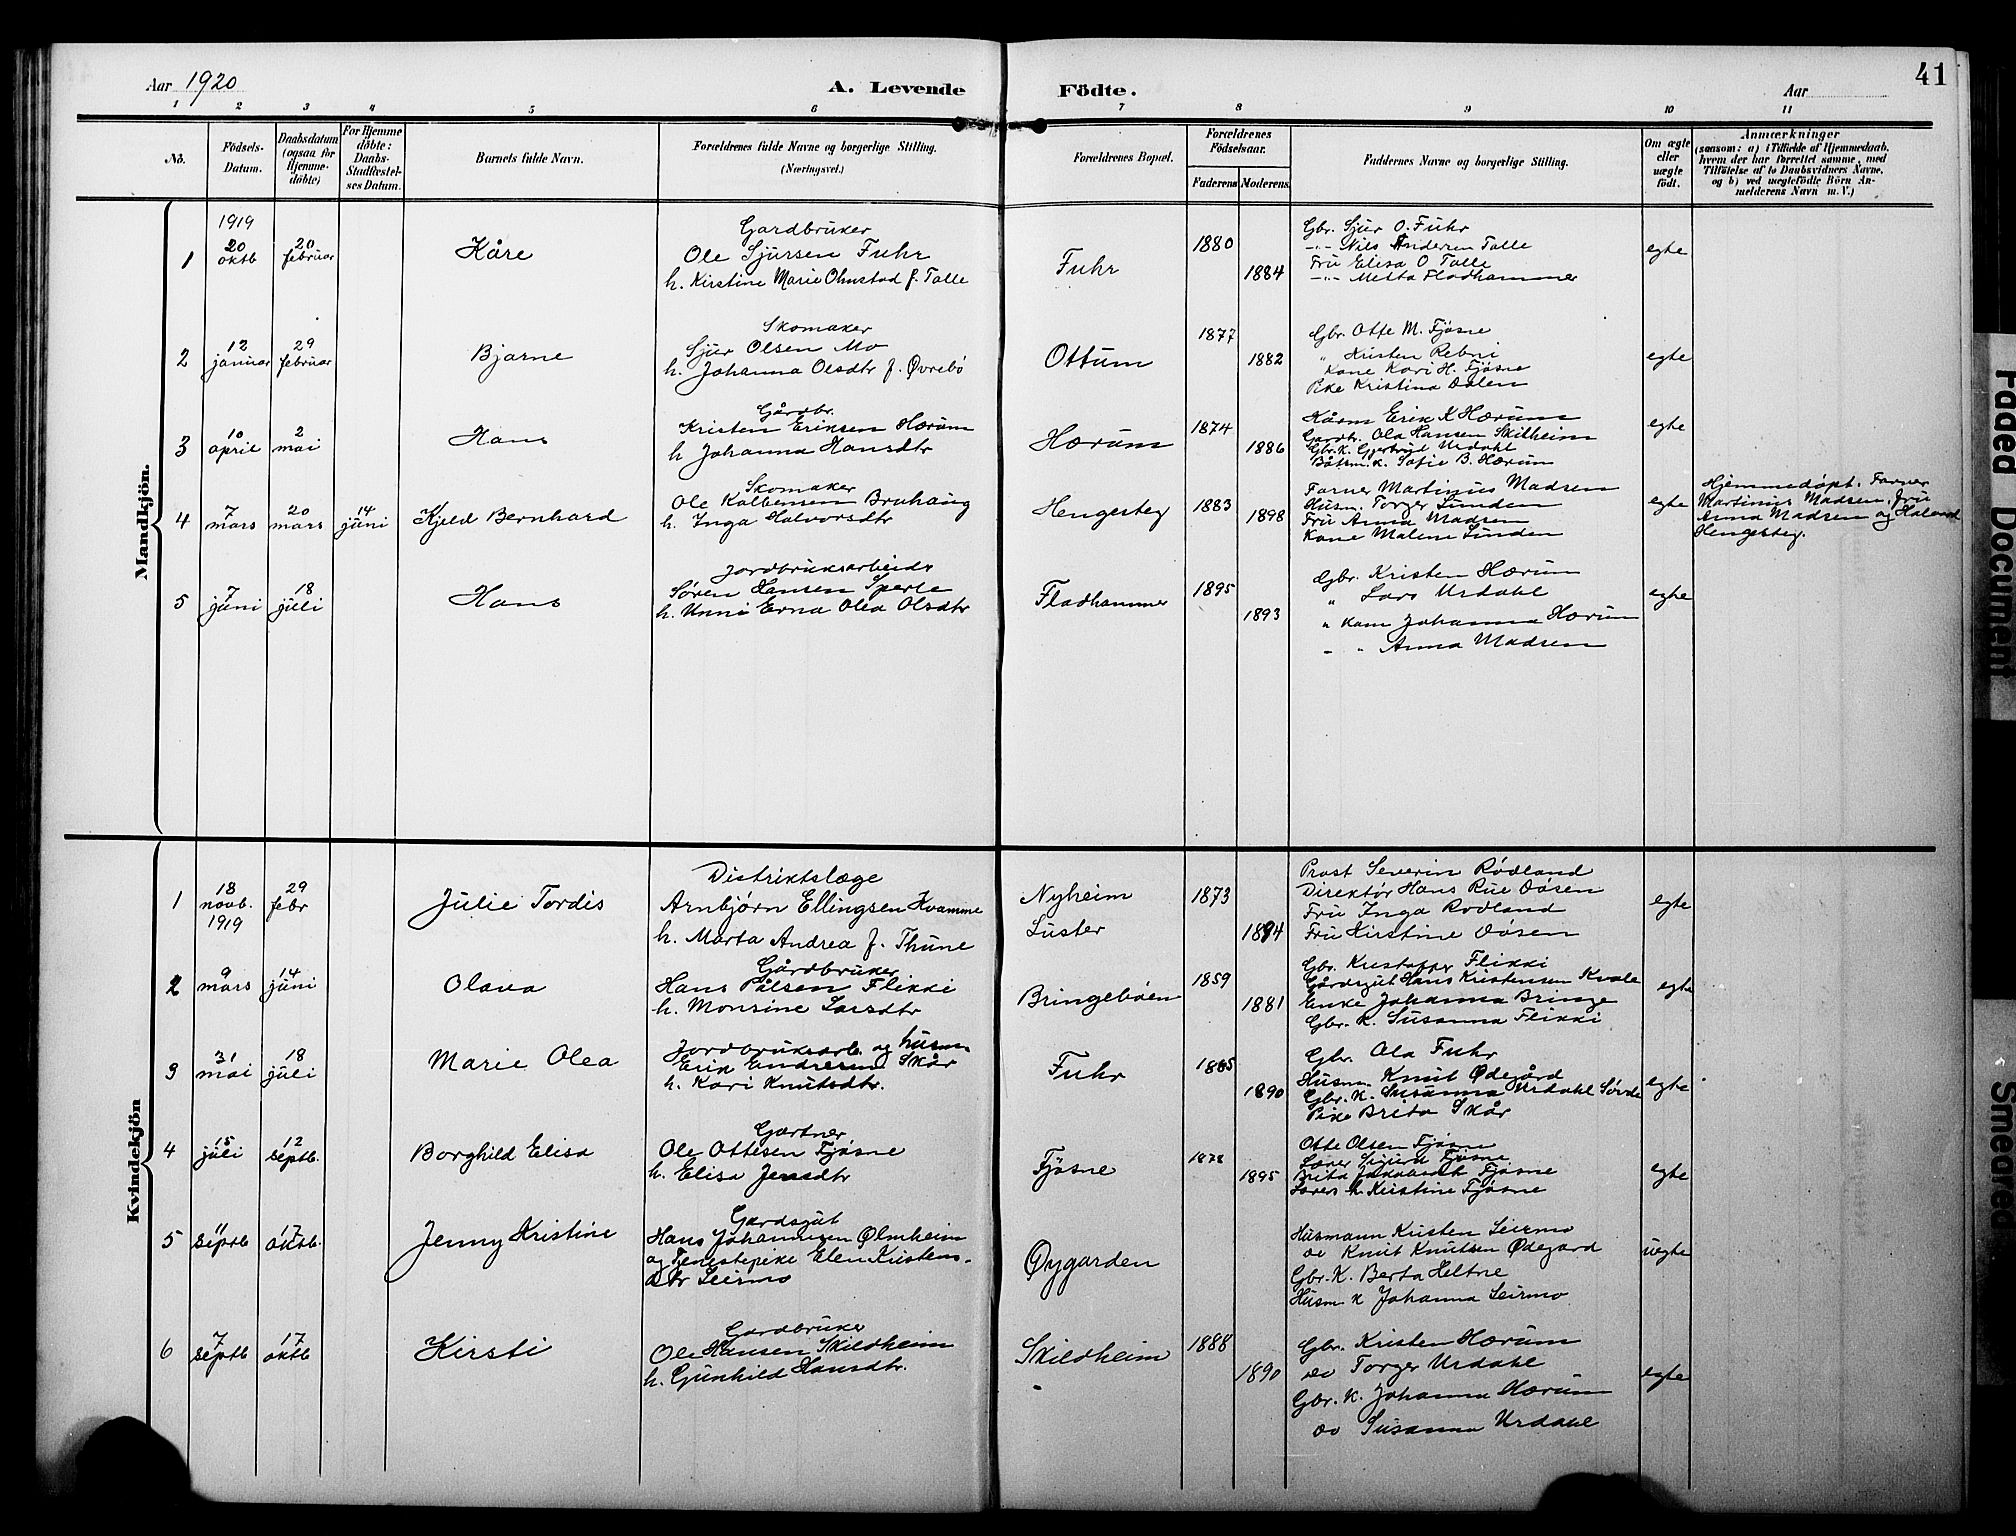 Aar 1920
A. Levende Födte.
Aar
41
1 2 3 4 5 6 7 8 9 10 11
No.
Födsels-
Datum.
Daabsdatum
(ogsaa for
Hjemme-
döbte)
For Hjemme
döbte:
Daabs-
Stadfestel-
ses Datum.
Barnets fulde Navn.
Forældrenes fulde Navne og borgerlige Stilling.
(Næringsvei.)
Forældrenes Bopæl.
Forældrenes
Födselsaar.
Faderens Moderens
Faddernes Navne og borgerlig Stilling.
Om ægte
eller
uægte
födt.
Anmærkninger
(saasom: a) i Tilfælde af Hjemmedaab,
hvem der har forrettet samme, med
Tilföielse af to Daabsvidners Navne,
og b) ved uægtefödte Börn An-
melderens Navn m. V.)
Mandkjön.
1
1919
20
oktb
20
februar
Kåre
Gardbruker
Ole Sjursen Fuhr
h. Kirstine Marie Olmstad f. Talle
Fuhr
1880
1884
Gbr. Sjur O. Fuhr
-"- Nils Anderen Talle
Fru Elisa O Talle
-"- Metta Fladhammer
egte
2
12
januar
29
februar
Bjarne
Skomaker
Sjur Olsen Mo
h. Johanna Olsdtr f. Øvrebø
Ottum
1877
1882
Gbr. Otte M. Fjøsne
" Kristen Rebni
Kone Kari H. Fjøsne
Pike Kristina Dalen
egte
3
10
april
2
mai
Hans
Gårdbr.
Kristen Eriksen Hærum
h Johanna Hansdtr
Hærum
1874
1886
Kårm Erik K Hærum
Gardbr. Ola Hansen Skilheim
Gbr. K. Gjertrud Urdahl
Båtsm. K. Sofie B. Hærum
egte
4
7
mars
20
mars
14
juni
Kjeld Bernhard
Skomaker
Ole Kolbensen Bruhaug
h. Inga Halvorsdtr
Hengesteg
1883
1898
Farver Martinus Madsen
Husm. Torger Linden
Fru Anna Madsen
Kone Malene Linden
egte
Hjemmedøpt. Farver
Martinus Madsen, fru
Anna Madsen og Halvard
Hengesteg.
5
7
juni
18
juli
Hans
Jordbruksarbeider
Søren Hansen Sperle
h. Unni Erna Olea Olsdtr
Fladhammer
1895
1893
Gbr. Kristen Hærum
" Lars Urdahl
" Kone Johanna Hærum
- " Anna Madsen
egte
Kvindekjön
1
18
novb.
1919
29
febr
Julie Tordis
Distriktslæge
Arnbjørn Ellingsen Kvamme
h. Marta Andrea f. Thune
Nyheim
Luster
1873
1884
Prost Severin Rødland
Direktør Hans Rue Døsen
Fru Inga Rødland
Fru Kirstine Døsen
egte
2
9
mars
14
juni
Olava
Gårdbruker
Hans Pålsen Flikki
h. Monsine Larsdtr
Bringebøen
1859
1881
Gbr. Kristoffer Flikki
Gårdsgut Hans Kristensen Kvale
Enke Johanna Bringe
Gbr. K. Susanna Flikki
egte
3
31
mai
18
juli
Marie Olea
Jordbruksarb. og husm
Erik Endresen Skår
h. Kari Knutsdtr.
Fuhr
1885
1890
Gbr. Ola Fuhr
Husm. Knut Ødegård
Gbr. K. Susanna Urdahl Sørde
Pike Brita Skår
egte
4
15
juli
12
septb.
Borghild Elisa
Gartner
Ole Ottesen Fjøsne
h. Elisa Jensdtr
Fjøsne
1878
1895
Otte Olsen Fjøsne
Lærer Sjurd Fjøsne
Brita Fjøsne
Lærers h. Kristine Fjøsne
egte
5
11
septb
17
oktb.
Jenny Kristine
Gardsgut
Hans Johannesen Ølmheim
og Tjenestepike Elen Kristens-
dtr Leirmo
Øygarden
Husmann Kristen Leirmo
do Knut Knutsen Ødegard
Gbr. K. Berta Heltne
Husm K Johanna Leirmo
uegte
6
7
septb
17
oktb
Kirsti
Gardbruker
Ole Hansen Skildheim
h. Gunhild Hansdtr.
Skildheim
1888
1890
Gbr. Kristen Hærum
do Torger Urdahl
Gbr. K. Johanna Hærum
do Susanna Urdahl
egte
Faded Document
Smeared.